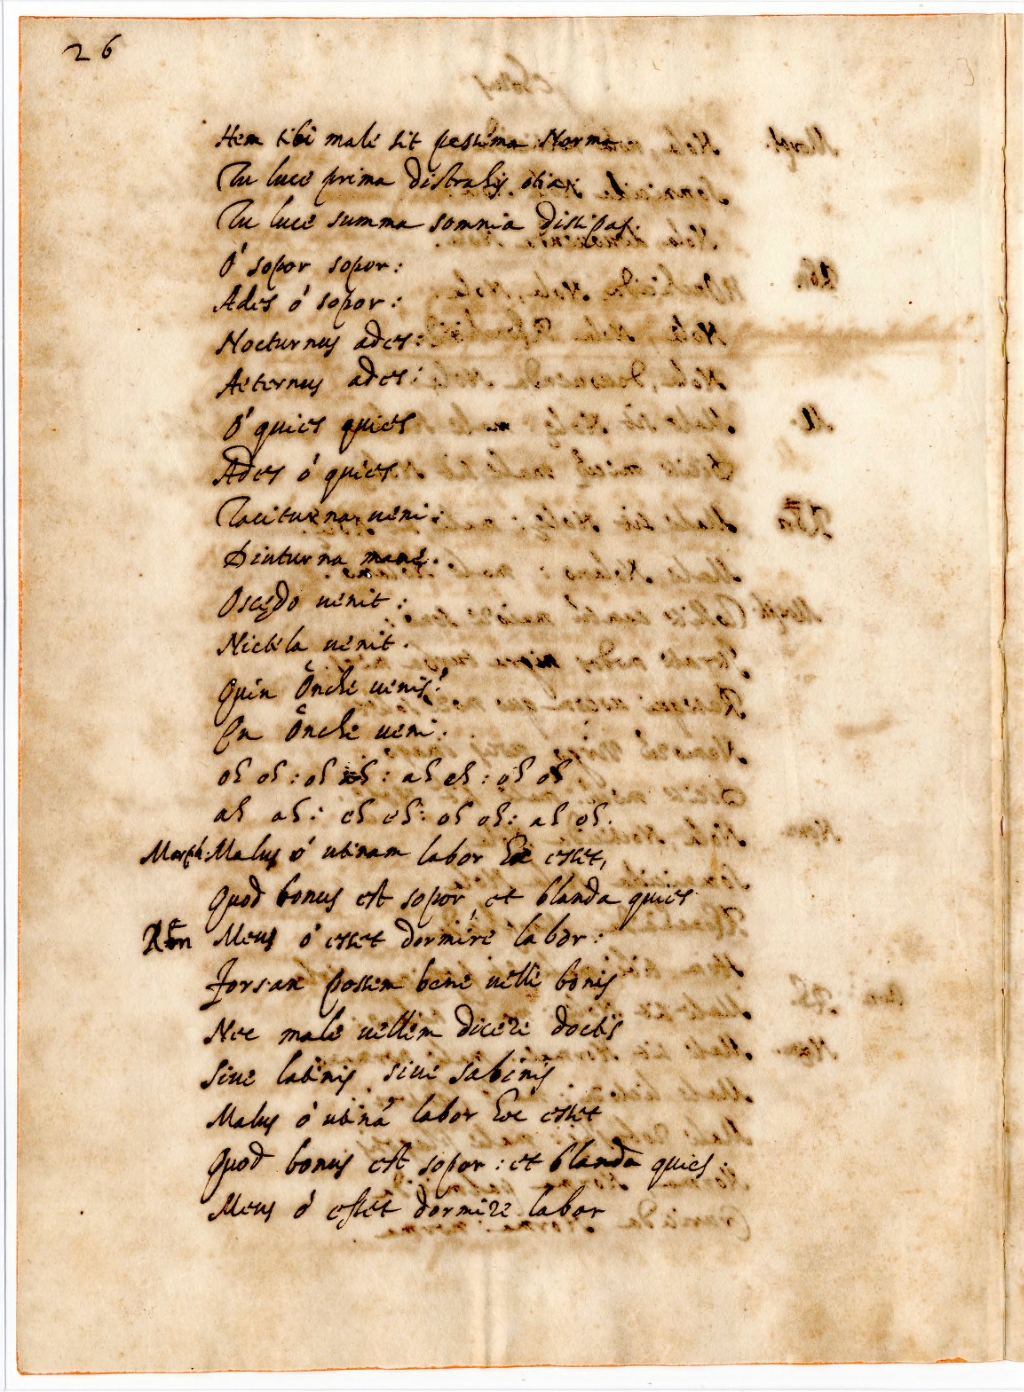 26
Hem tibi malè sit pessima Norma
Tu luce prima distrahis otia:
Tu luce summa somnia dissipas.
O' sopor sopor:
Ades ó sopor:
Nocturnus ades:
Aeternus ades:
O' quies quies
Ades ó quies
Taciturna veni:
Diuturna mane.
Oscędo uenit:
Nictela uenit.
Quin Onche uenis?
En Onche ueni:
oh oh: oh oh: ah eh: oh oh
ah ah: eh eh: oh oh: ah oh.
Morph: Malus ó utinam labor hoc esset,
Quod bonus est sopor et blanda quies
Ron Meus ó esset dormire labor:
Forsan possem bene uelle bonis
Nec male uellem dicere doctis
Siue latinis siue sabinis
Malus ó utinã labor hoc esset
Quod bonus est sopor: et blanda quies:
Meus ó esset dormire labor